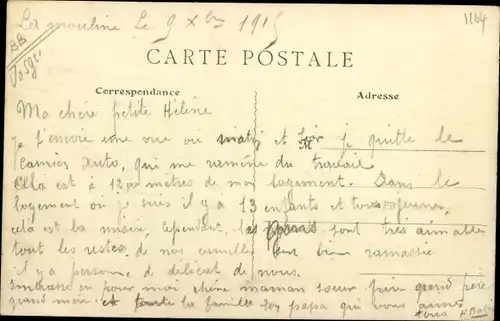 1164
La mouline Le 9 Xbre 1915
BB
Vosges
CARTE POSTALE
Correspondance
Adresse
Ma chère petite Hélène
Je t'envoie une vue ou matin et Soir je quitte le
Camion Auto, qui me ramène du travail
Cela est à 1200 mètres de mon logement. Dans le
logement ou je suis il y a 13 enfants et tous jeunes,
cela est la misère, cependant, les sont très aimable
tout les restes de nos gamelles bien ramassée
il y a personne de délicat de nous.
Embrasse en pour moi chère maman soeur frère grand père
grand mère et toute la famille ton papa qui vous aime
tous H